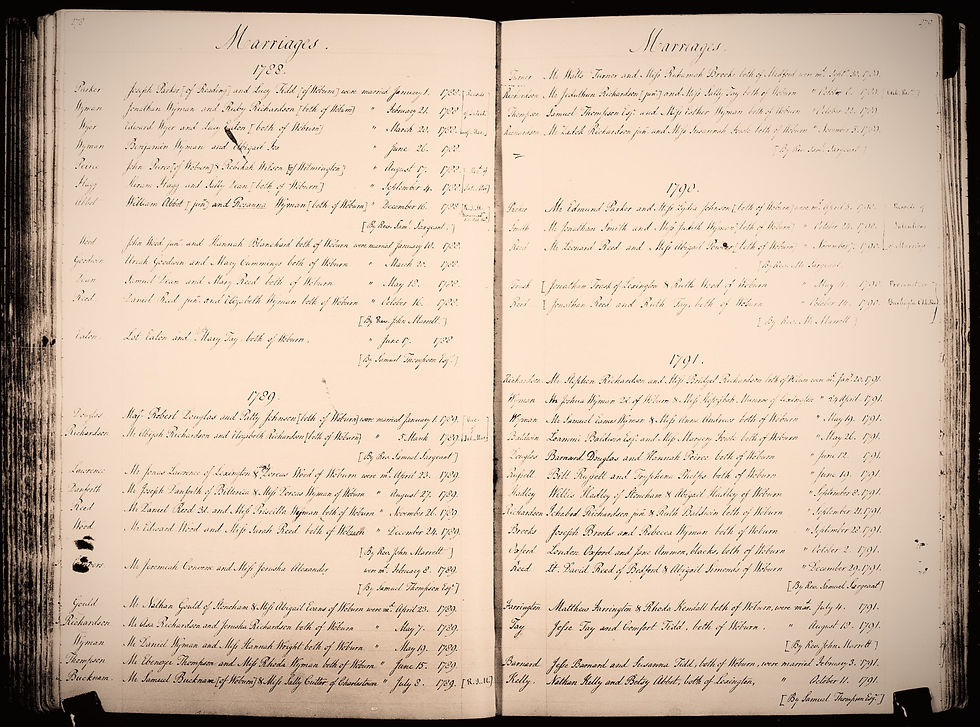 178
Marriages.
1788.
Parker Joseph Parker [of Reading] and Lucy Tidd [of Woburn] were married January 1. 1788
Wyman Jonathan Wyman and Ruby Richardson [both of Woburn] " February 21. 1788
Wyer Edward Wyer and Lucy Eaton [both of Woburn] " March 20. 1788
Wyman Benjamin Wyman and Abigail " June 26. 1788
Peirce John Peirce [of Woburn] & Rebekah Wilson [of Wilmington] " August 17. 1788
Flagg Hiram Flagg and Sally Dean [both of Woburn] " September 4. 1788
Abbot William Abbot [junr.] and Rosanna Wyman [both of Woburn] " December 16. 1788
[By Rev. Saml. Sargeant.]
Wood John Wood junr. and Hannah Blanchard both of Woburn were married January 10. 1788
Goodwin Uriah Goodwin and Mary Cummings both of Woburn " March 20. 1788
Dean Samuel Dean and Mary Reed both of Woburn " May 18. 1788
Reed Daniel Reed junr. and Elizabeth Wyman both of Woburn " October 16. 1788
[By Rev. John Marrett.]
Eaton. Lot Eaton and Mary Tay, both of Woburn. " June 17. 1788
[By Samuel Thompson Esqr.]
1789.
Douglas Majr. Robert Douglas and Polly Johnson [both of Woburn] were married January 1. 1789.
Richardson Mr. Abijah Richardson and Elizabeth Richardson [both of Woburn] " 5 March 1789.
[By Rev. Samuel Sargeant]
Lawrence Mr. Jonas Lawrence of Lexington & Dorcas Wood of Woburn were md. April 23. 1789.
Danforth Mr. Joseph Danforth of Billerica & Miss Dorcas Wyman of Woburn " August 27. 1789.
Reed Mr. Daniel Reed 2d. and Miss Priscilla Wyman both of Woburn " November 26. 1789.
Wood Mr. Edward Wood and Miss Sarah Reed both of Woburn " December 24. 1789.
[By Rev. John Marrett]
Mr. Jeremiah Converse and Miss Jerusha Alexander were md. February 8. 1789.
[By Samuel Thompson Esqr.]
Gould Mr. Nathan Gould of Stoneham & Miss Abigail Evans of Woburn were md. April 23. 1789.
Richardson Mr. Asa Richardson and Jerusha Richardson both of Woburn " May 7. 1789.
Wyman Mr. Daniel Wyman and Miss Hannah Wright both of Woburn " May 19. 1789.
Thompson Mr. Ebenezer Thompson and Miss Rhoda Wyman both of Woburn " June 15. 1789.
Bucknam. Mr. Samuel Bucknam [of Woburn] & Miss Sally Cutter of Charlestown " July 8. 1789.
179
Marriages.
Turner Mr. Wells Turner and Miss Ruhamah Brooks both of Medford were md. Septr. 20. 1789.
Richardson Mr. Jeduthun Richardson [junr.] and Miss Sally Tay both of Woburn " October
Thompson Samuel Thompson Esqr. and Miss Esther Wyman both of Woburn " October 22. 1789.
Richardson Mr. Zadok Richardson junr. and Miss Susannah Foote both of Woburn " November 3. 1789.
[By Rev. Saml. Sargeant]
1790.
Parker Mr. Edmund Parker and Miss Lydia Johnson [both of Woburn] were md. April 1790.
Smith Mr. Jonathan Smith and Miss Judith Wyman [both of Woburn] " October 24. 1790.
Reed Mr. Leonard Reed and Miss Abigail [both of Woburn] " November 7. 1790.
[By Rev. Mr. Sargeant.
[Jonathan of Lexington & Ruth Wood of Woburn " May 4. 1790.
Reed [Jonathan Reed and Ruth Tay, both of Woburn " October 14. 1790.
[By Rev. Mr. Marrett]
1791.
Richardson Mr. Stephen Richardson and Miss Bridget Richardson both of Woburn were md. Jany. 20. 1791.
Wyman Mr. Joshua Wyman 2d. of Woburn & Miss Hepzibah Munroe of Lexington " 24 April 1791.
Wyman Mr. Samuel Eames Wyman & Miss Anne Andrews both of Woburn " May 19. 1791.
Baldwin Loammi Baldwin Esqr. and Miss Margery Foote both of Woburn " May 26. 1791.
Douglas Barnard Douglas and Hannah Peirce both of Woburn " June 12. 1791.
Russell Bill Russell and Tryphena Phelps both of Woburn " June 19. 1791.
Hadley Willis Hadley of Stoneham & Abigail Hadley of Woburn " September 8. 1791.
Richardson Ichabod Richardson junr. & Ruth Baldwin both of Woburn " September 22. 1791.
Brooks Joseph Brooks and Rebecca Wyman both of Woburn " September 22. 1791.
Oxford London Oxford and Jane Ammon, blacks, both of Woburn " October 2. 1791.
Reed Lt. David Reed of Bedford & Abigail Simonds of Woburn " December 29. 1791.
[By Rev. Samuel Sargeant]
Farrington Matthew Farrington & Rhoda Kendall both of Woburn, were md. July 4. 1791.
Tay Jesse Tay and Comfort Tidd, both of Woburn. " August 18. 1791.
[By Rev. John Marrett]
Barnard Jesse Barnard and Susanna Tidd, both of Woburn, were married February 3. 1791.
Kelly. Nathan Kelly and Betsy Abbot, both of Lexington, " October 11. 1791.
[By Samuel Thompson Esqr.]